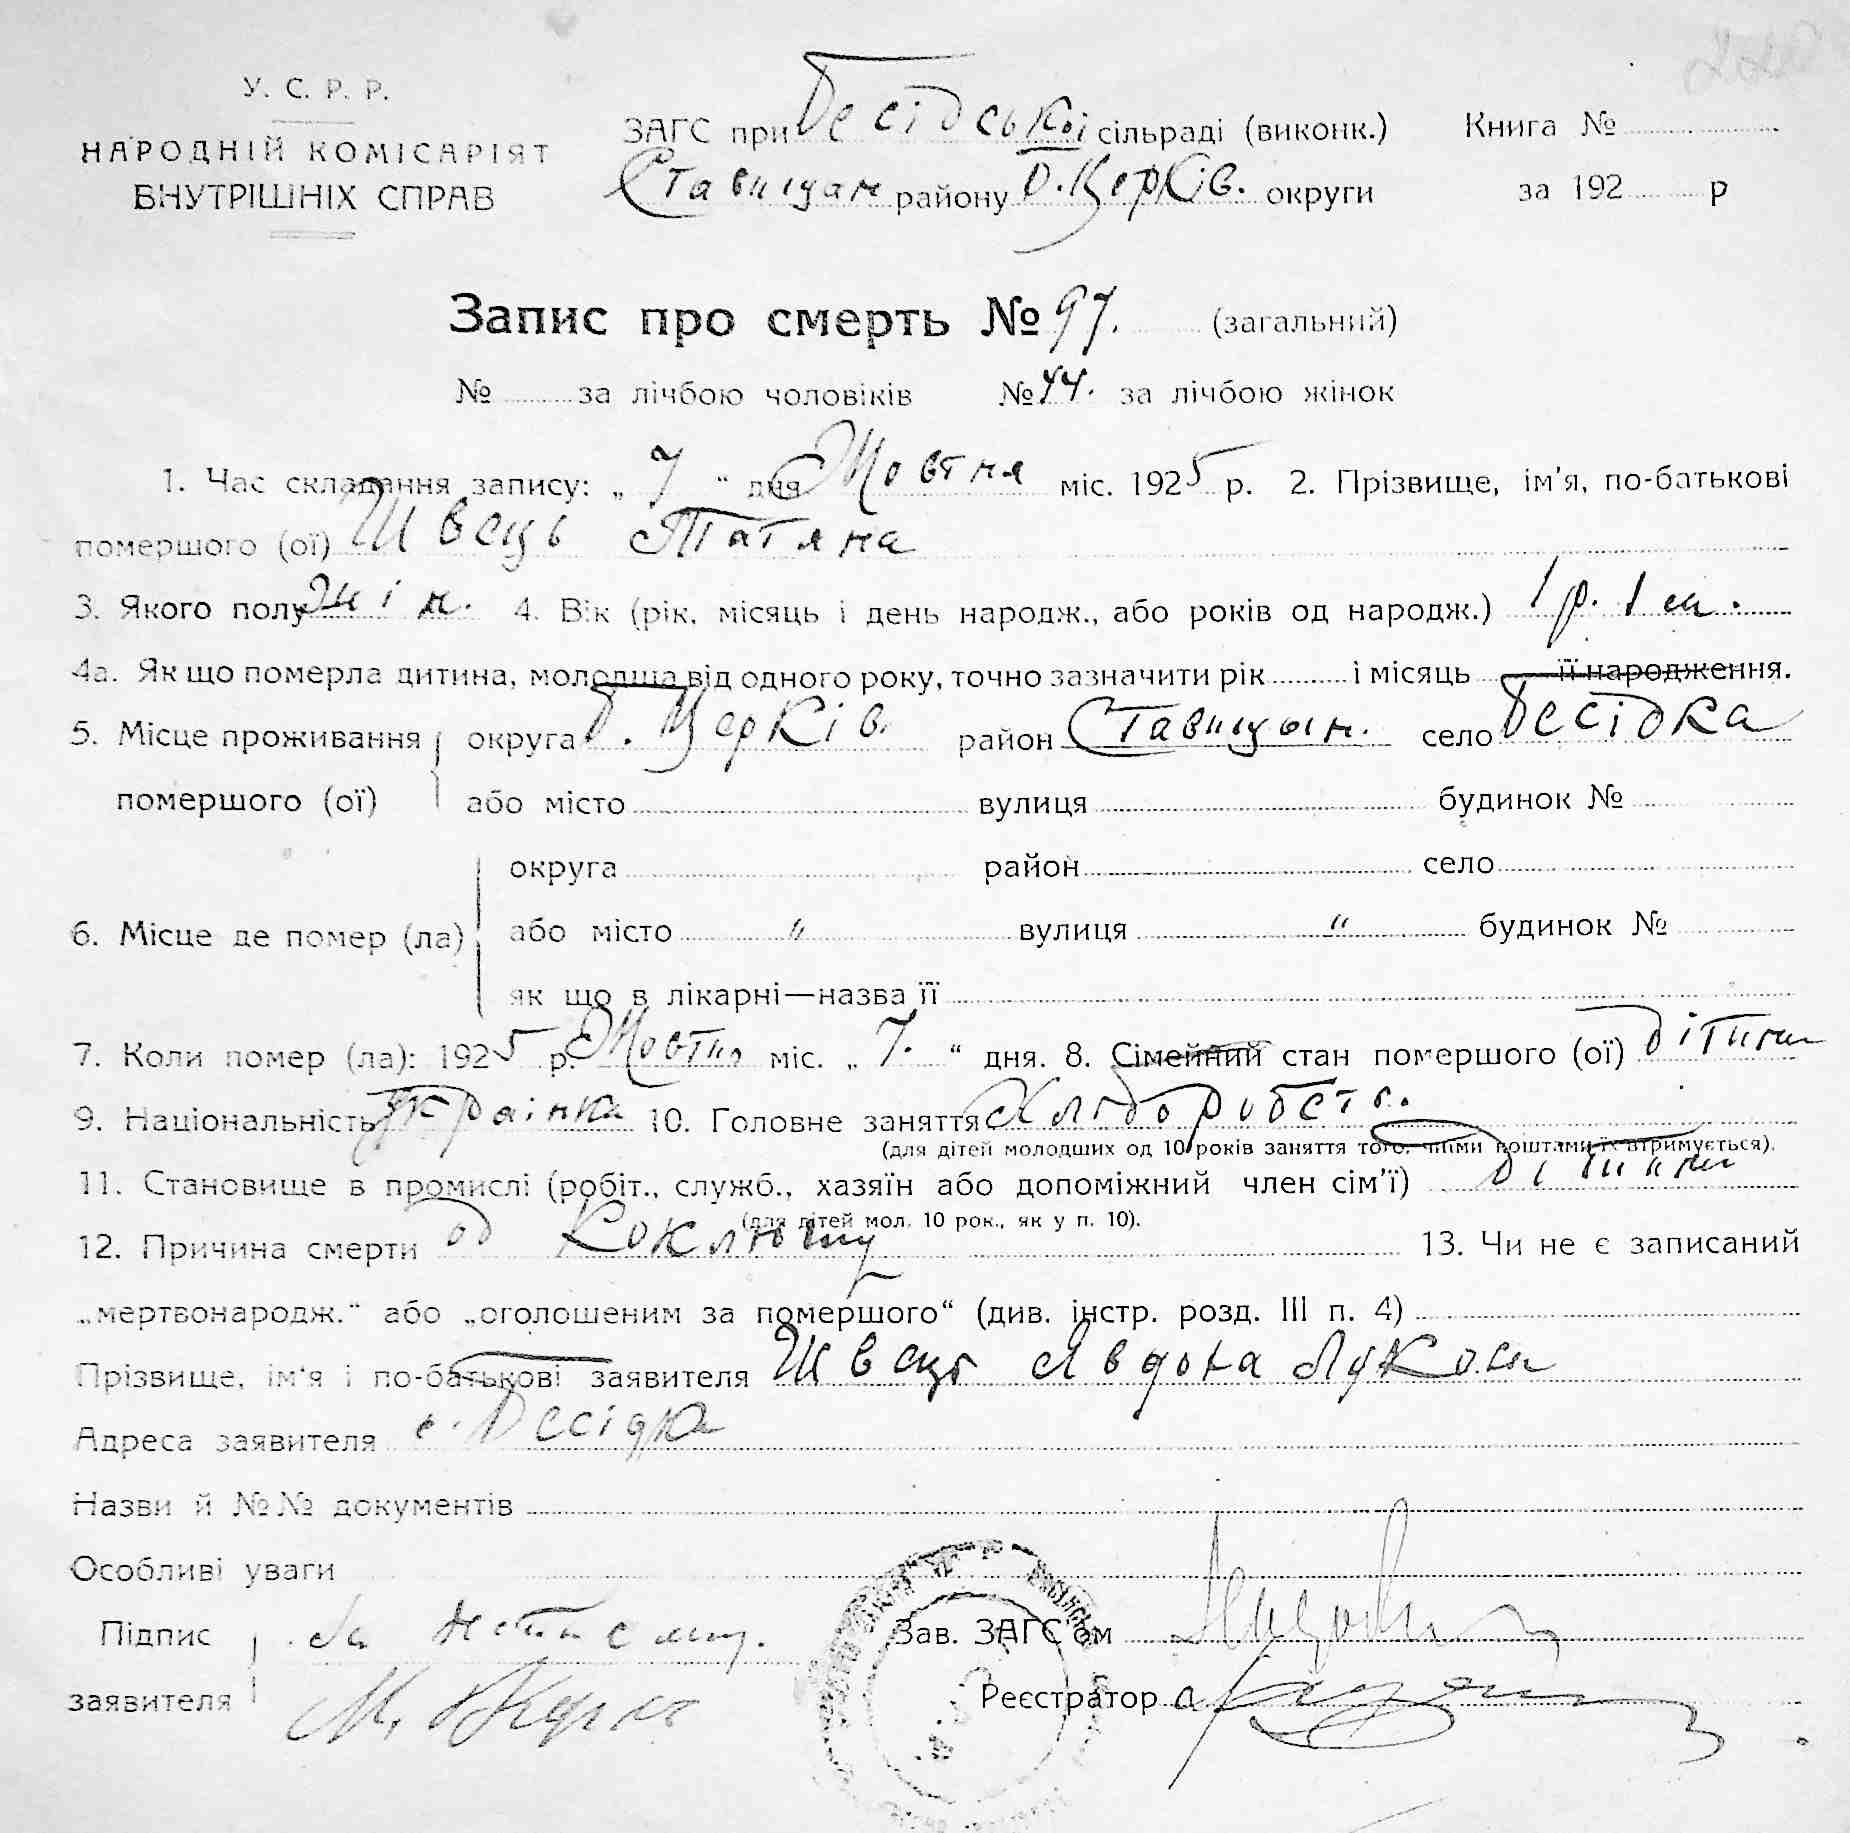 У. С. Р. Р.
НАРОДНІЙ КОМІСАРІЯТ
ВНУТРІШНІХ СПРАВ
ЗАГС при Бесідській сільраді (виконк.) Книга №
Ставищан району Б. Церків. округи за 192 р
Запис про смерть № 97. (загальний)
№ за лічбою чоловіків № 44. за лічбою жінок
1. Час складання запису: „ 7 “ дня Жовтня міс. 1925 р. 2. Прізвище, ім'я, по-батькові
помершого (ої) Швець Татяна
3. Якого полу жін. 4. Вік (рік, місяць і день народж., або років од народж.) 1 р. 1 м.
4а. Як що померла дитина, молодша від одного року, точно зазначити рік і місяць її народження.
5. Місце проживання округа Б. Церків. район Ставищан. село Бесідка
помершого (ої) або місто вулиця будинок №
округа район село
6. Місце де помер (ла) або місто " вулиця " будинок №
як що в лікарні—назва її
7. Коли помер (ла): 1925 р. Жовтня міс. „ 7. “ дня. 8. Сімейний стан помершого (ої) дітина
9. Національність Українка 10. Головне заняття Хліборобств.
(для дітей молодших од 10 років заняття того, чиїми коштами їх втримується).
11. Становище в промислі (робіт., служб., хазяїн або допоміжний член сім'ї) дітина
(для дітей мол. 10 рок., як у п. 10).
12. Причина смерти од Коклюшу 13. Чи не є записаний
„мертвонародж.“ або „оголошеним за помершого“ (див. інстр. розд. III п. 4)
Прізвище, ім'я і по-батькові заявителя Швець Явдоха
Адреса заявителя с. Бесідка
Назви й №№ документів
Особливі уваги
Підпис За неписмн. Зав. ЗАГС'ом
заявителя Реєстратор